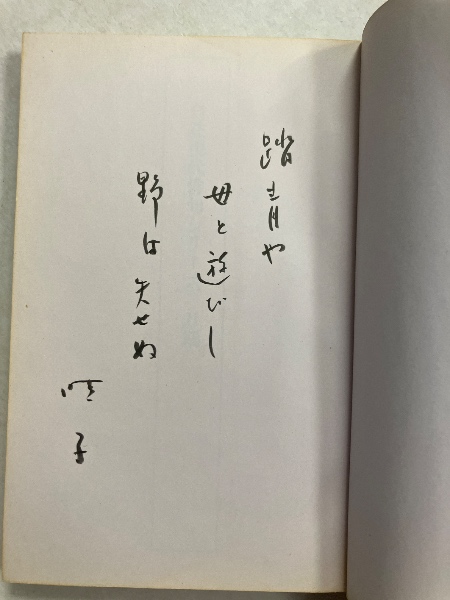 踏青や
母と遊びし
野は失せぬ